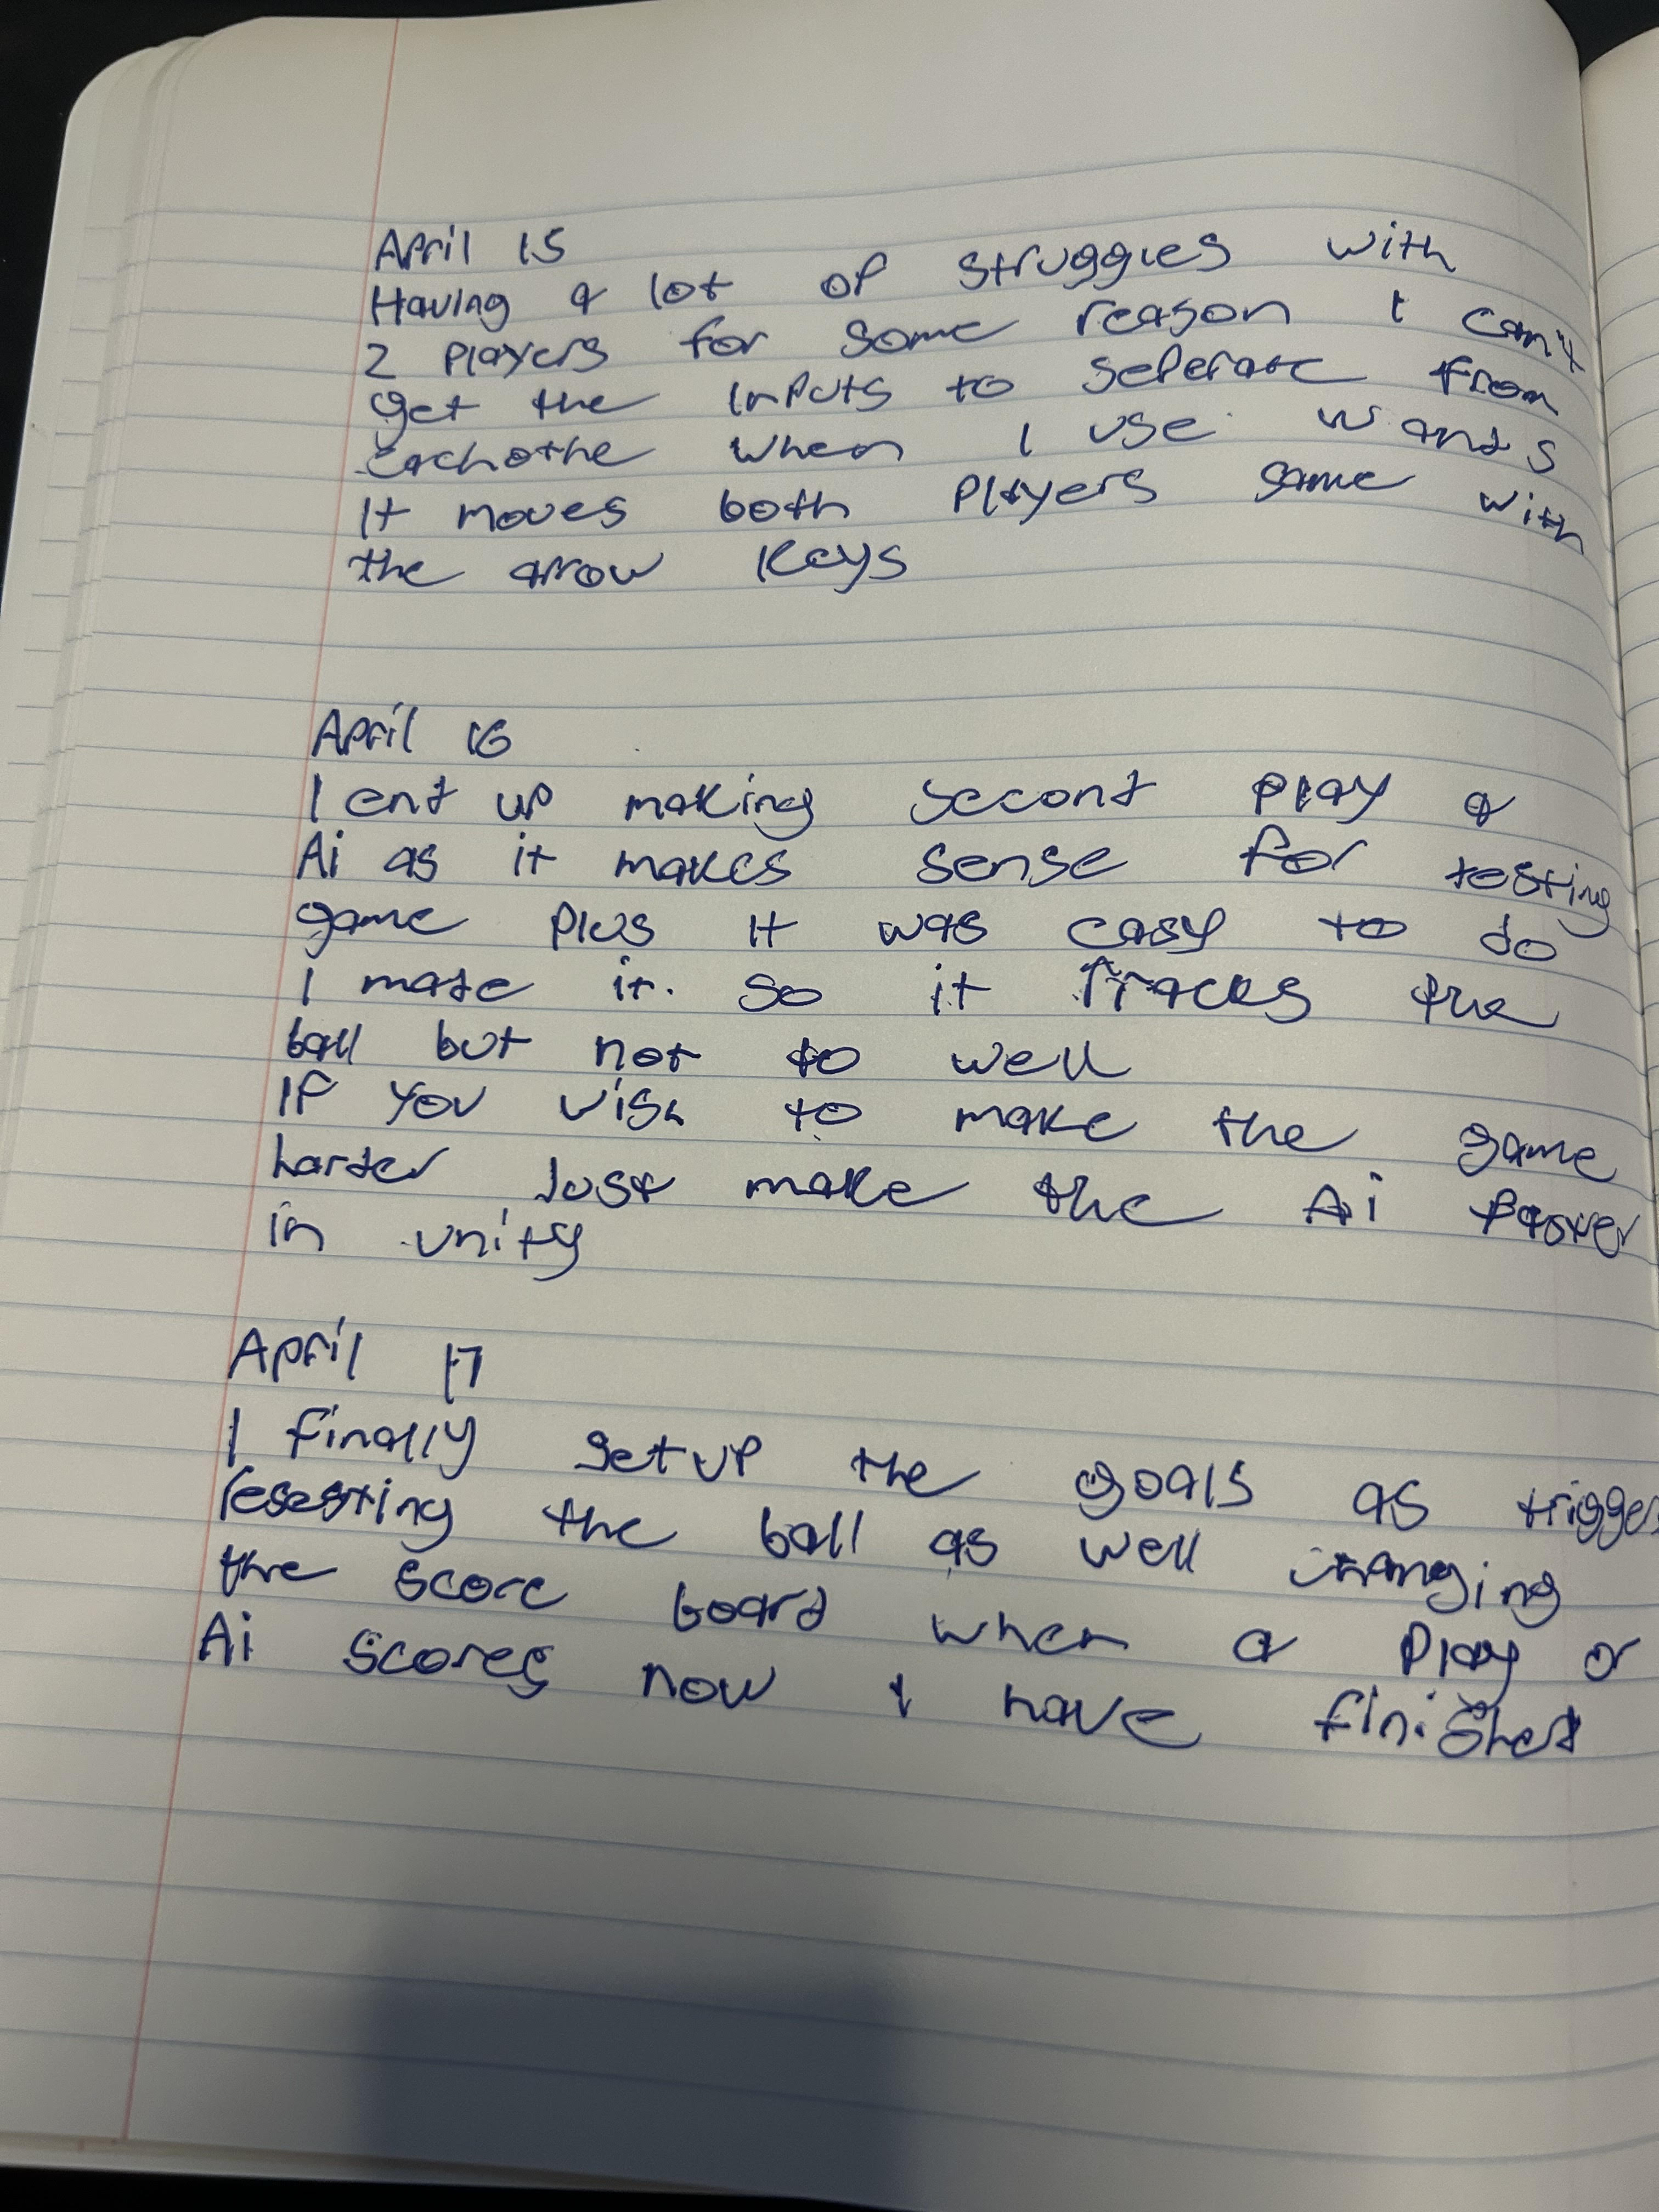 April 15
Having a lot of struggles with
2 players for some reason I can't
get the inputs to seperate from
eachothe when I use W and S
It moves both players same with
the arrow keys
April 16
I end up making second play a
Ai as it makes sense for testing
game plus it was easy to do
I made it so it tracks the
ball but not to well
If you wish to make the game
harder Just make the Ai faster
in unity
April 17
I finally setup the goals as trigger
resesting the ball as well changing
the score board when a play or
Ai scores now I have finished